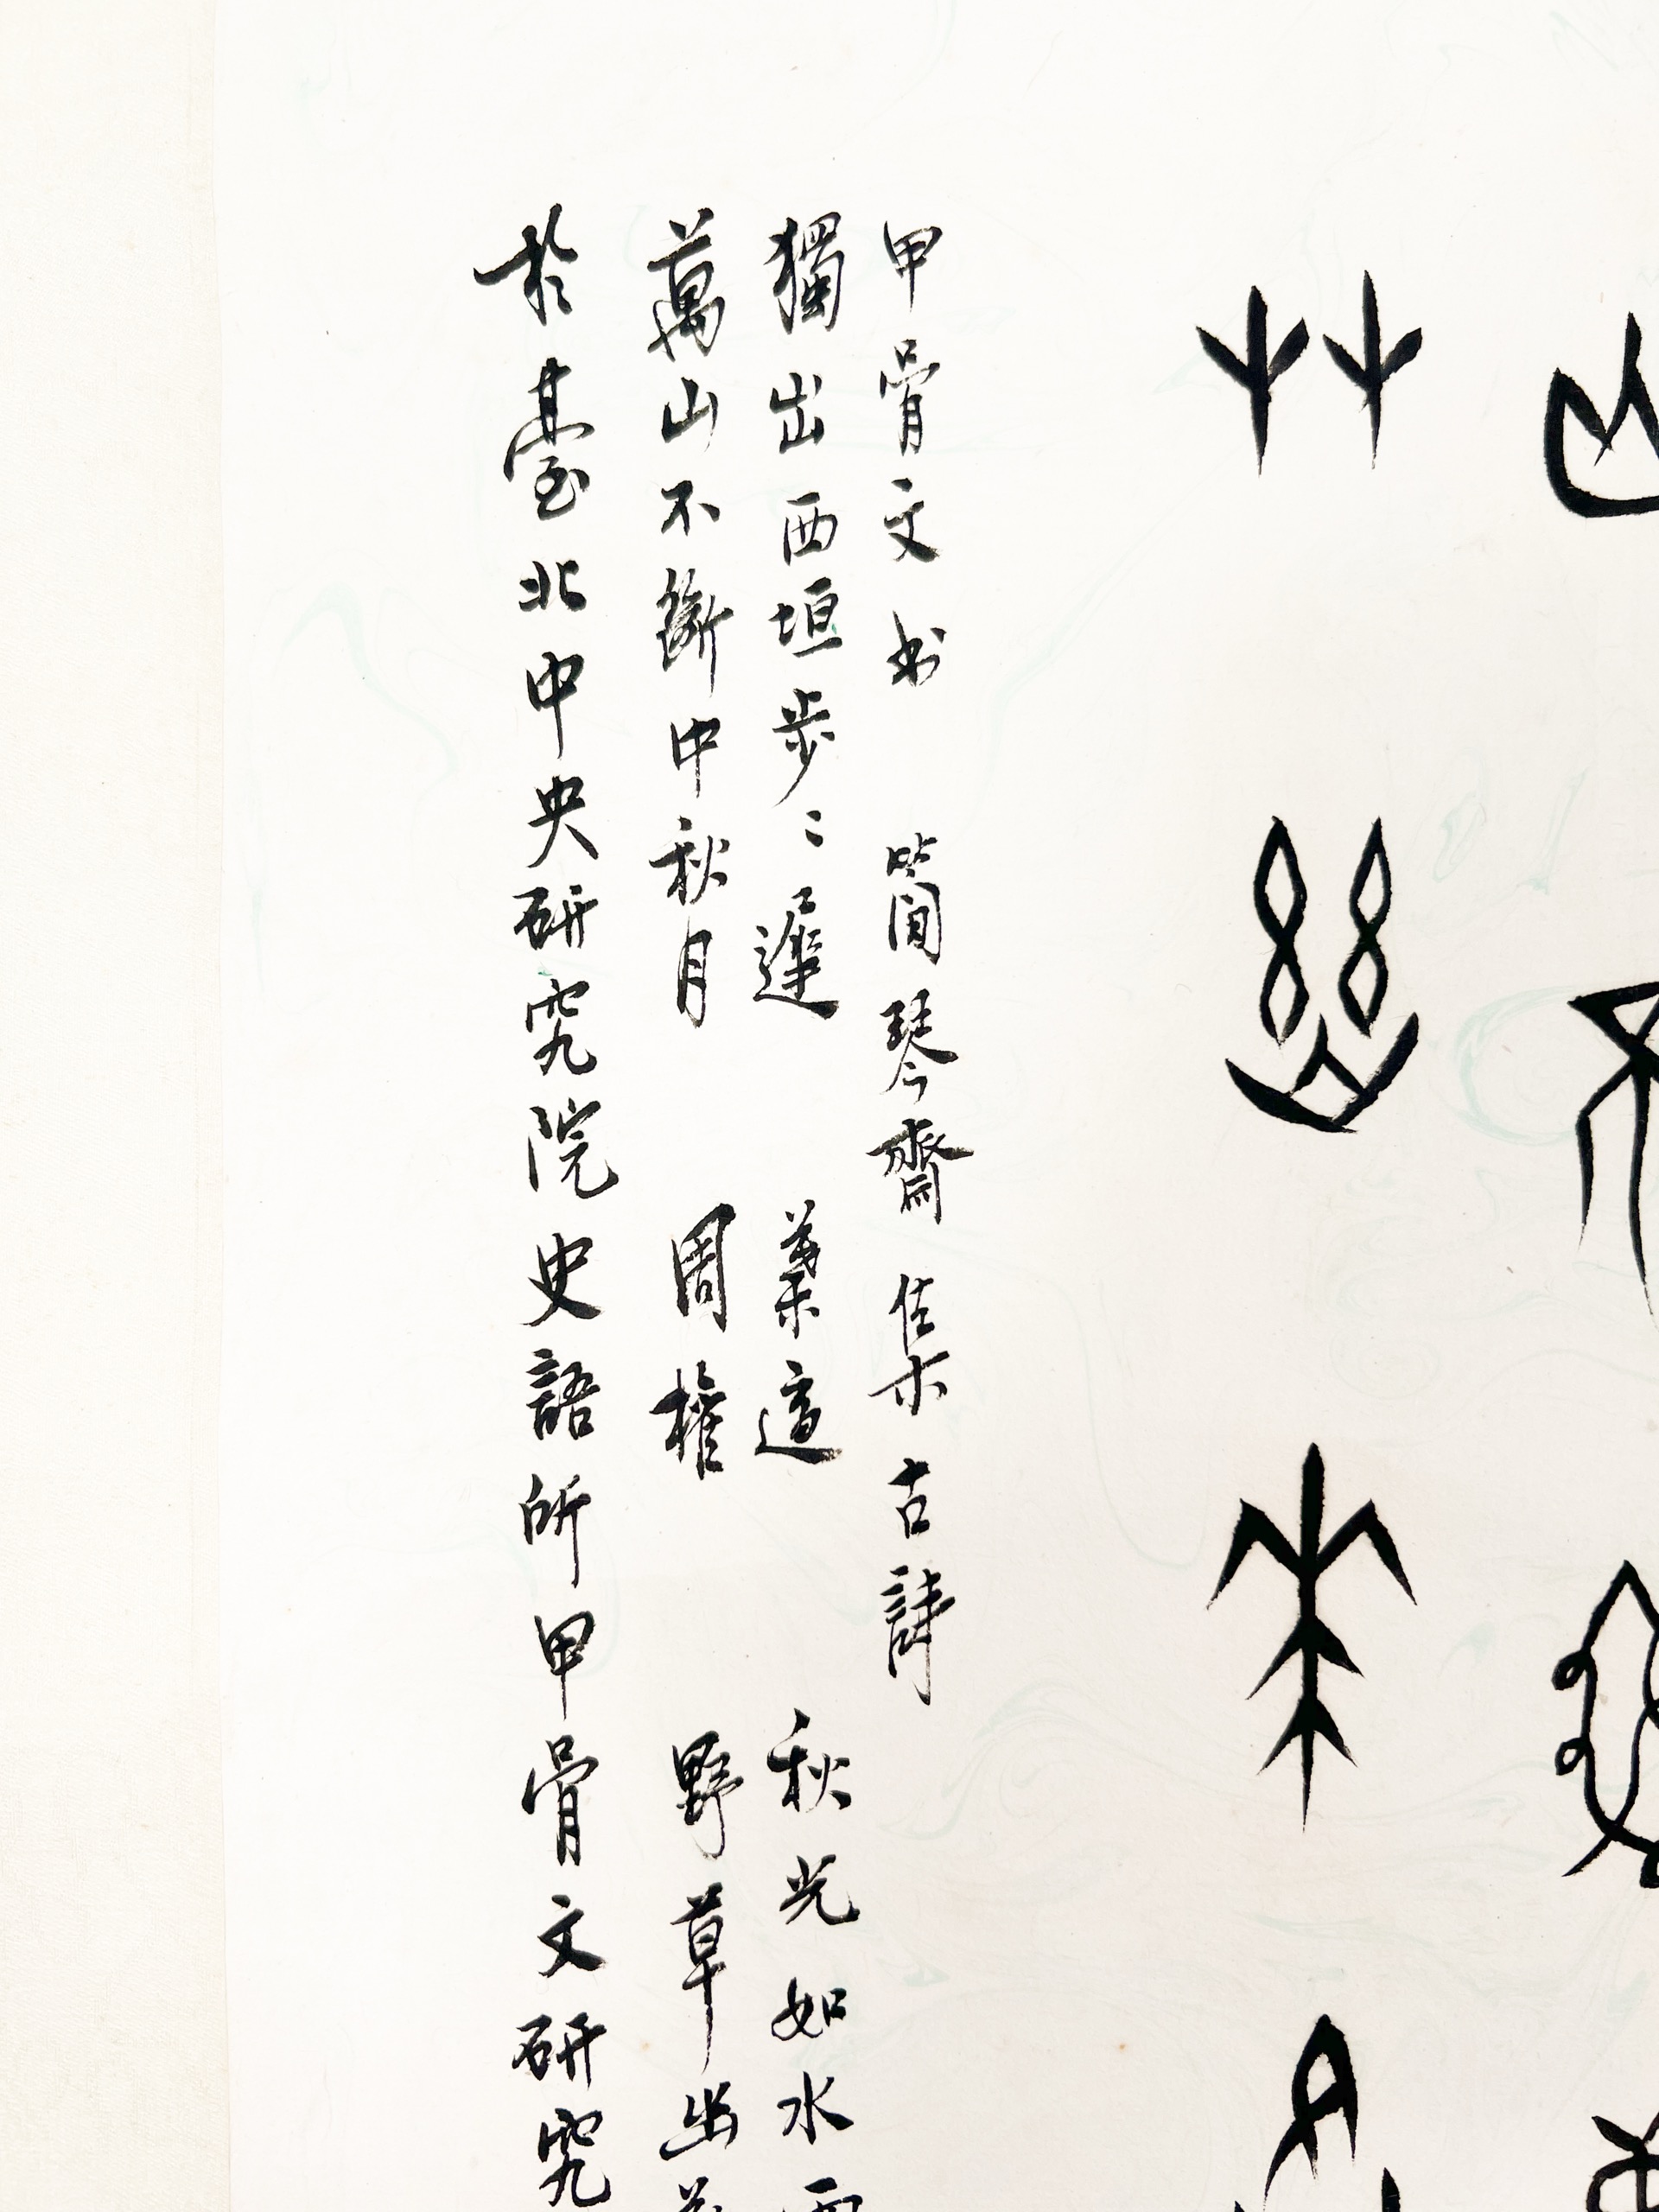 艸幽
甲骨文书 簡琴齋集古詩
獨出西垣步〻遲 葉適 秋光如水
萬山不斷中秋月 周權 野草幽
於臺北中央研究院史語所甲骨文研究